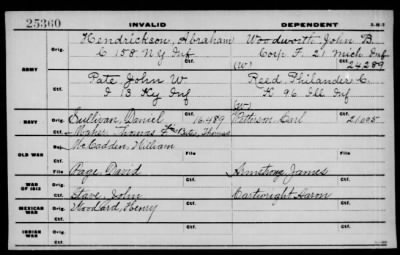 25360 INVALID DEPENDENT 3-H-7
ARMY
Orig. Hendrickson, Abraham Woodworth John B.
C 158 N.Y. Inf Corp F. 21 Mich Inf
Ctf. (W) 24289
Orig. Pate John W Reed Philander C.
Ctf. I 13 Ky Inf K 96 Ill Inf
(W)
NAVY
Orig. Sullivan, Daniel 16.489 Patterson Carl 21695
Ctf. Maher Thomas Thomas
OLD WAR
Orig. McCadden, William
Ctf.
File
WAR OF 1812
Orig. Page, David Armstrong James
Ctf.
MEXICAN WAR
Orig. Stave, John Cartwright Aaron
Ctf. Woodard, Henry
INDIAN WAR
Orig.
Ctf.